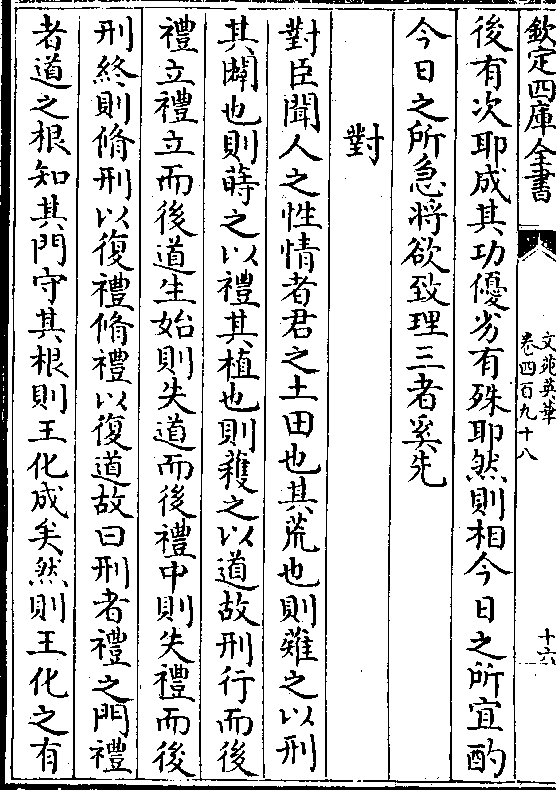 欽定四庫全書
文苑英華
卷四百九十八
十六
後有次耶成其功優劣有殊耶然則相今日之所宜酌
今日之所急將欲致理三者奚先
對
對臣聞人之性情者君之土田也其荒也則薙之以刑
其闢也則蒔之以禮其植也則穫之以道故刑行而後
禮立禮立而後道生始則失道而後禮中則失禮而後
刑終則脩刑以復禮脩禮以復道故曰刑者禮之門禮
者道之根知其門守其根則王化成矣然則王化之有